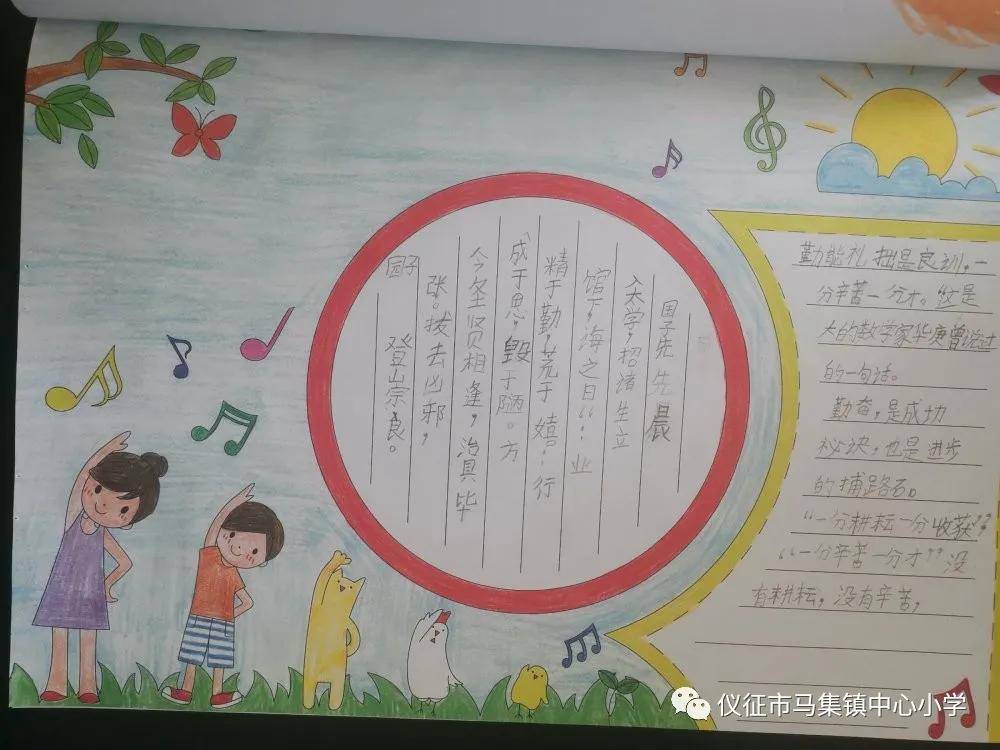 国子先 先晨
入太学，招诸生立
馆下，海之日“：业
精于勤，荒于嬉：行
成于思，毁于随。方
今圣贤相逢，治具毕
张。拔去凶邪，
登崇良。
园子
勤能补拙是良训，一
分辛苦一分才。这是
大的数学家华庚曾说过
的一句话。
勤奋，是成功
秘决，也是进步
的捕路石。
“一分耕耘一分收获”，
“一分辛苦一分才”没
有耕耘，没有辛苦，
仪征市马集镇中心小学